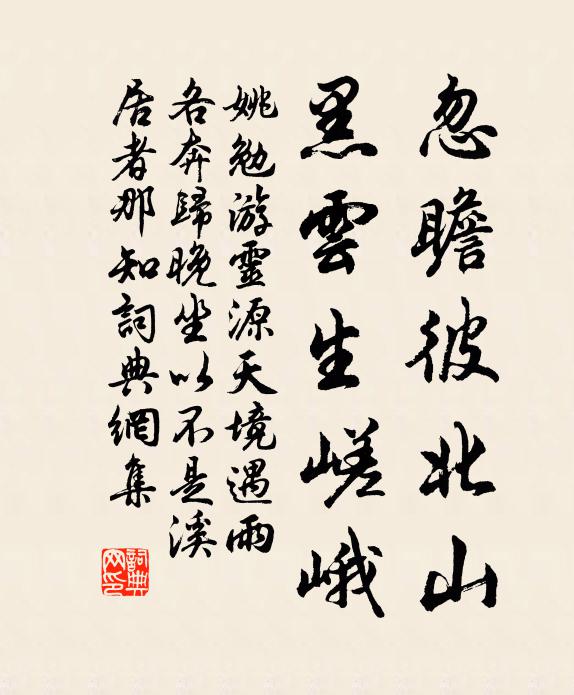 忽瞻彼北山
黑雲生嵯峨
姚勉游靈源天境遇雨
各奔歸晚坐以不是溪
居者那知詞典網集
詞典
网印